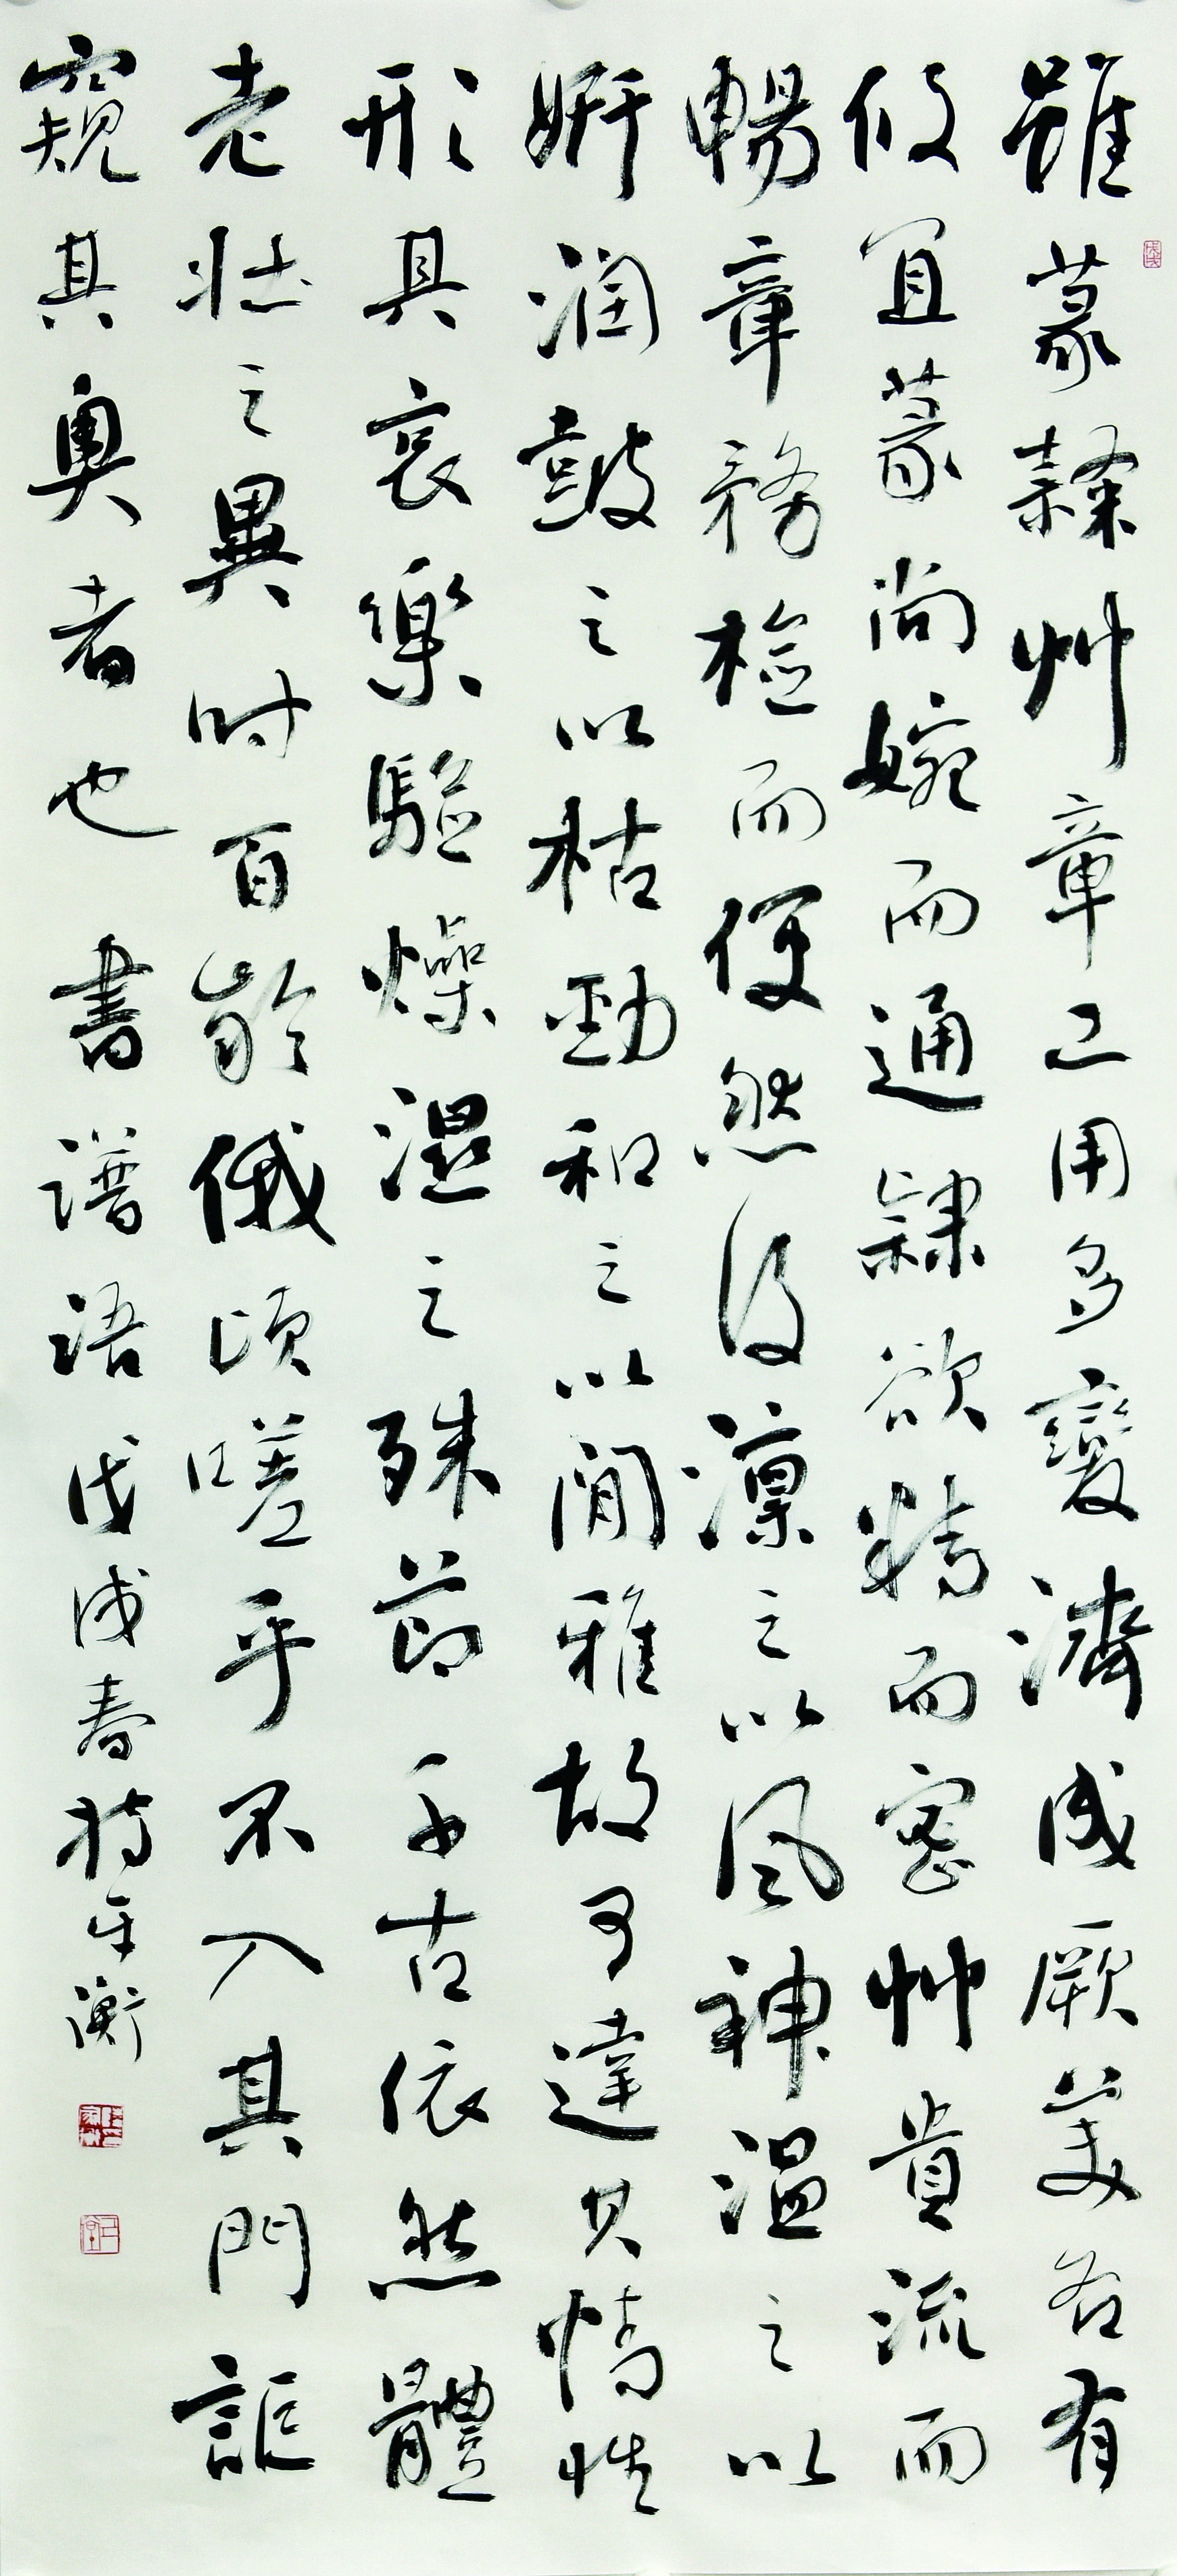 雖篆隸艸章工用多變濟成厥美各有
攸宜篆尚婉而通隸欲精而密艸貴流而
暢章務檢而便然後凜之以風神温之以
妍潤鼓之以枯勁和之以閒雅故可達其情性
形其哀樂驗燥濕之殊節千古依然體
老壯之異時百齡俄頃嗟乎不入其門詎
窺其奥者也 書譜語 戊戌春